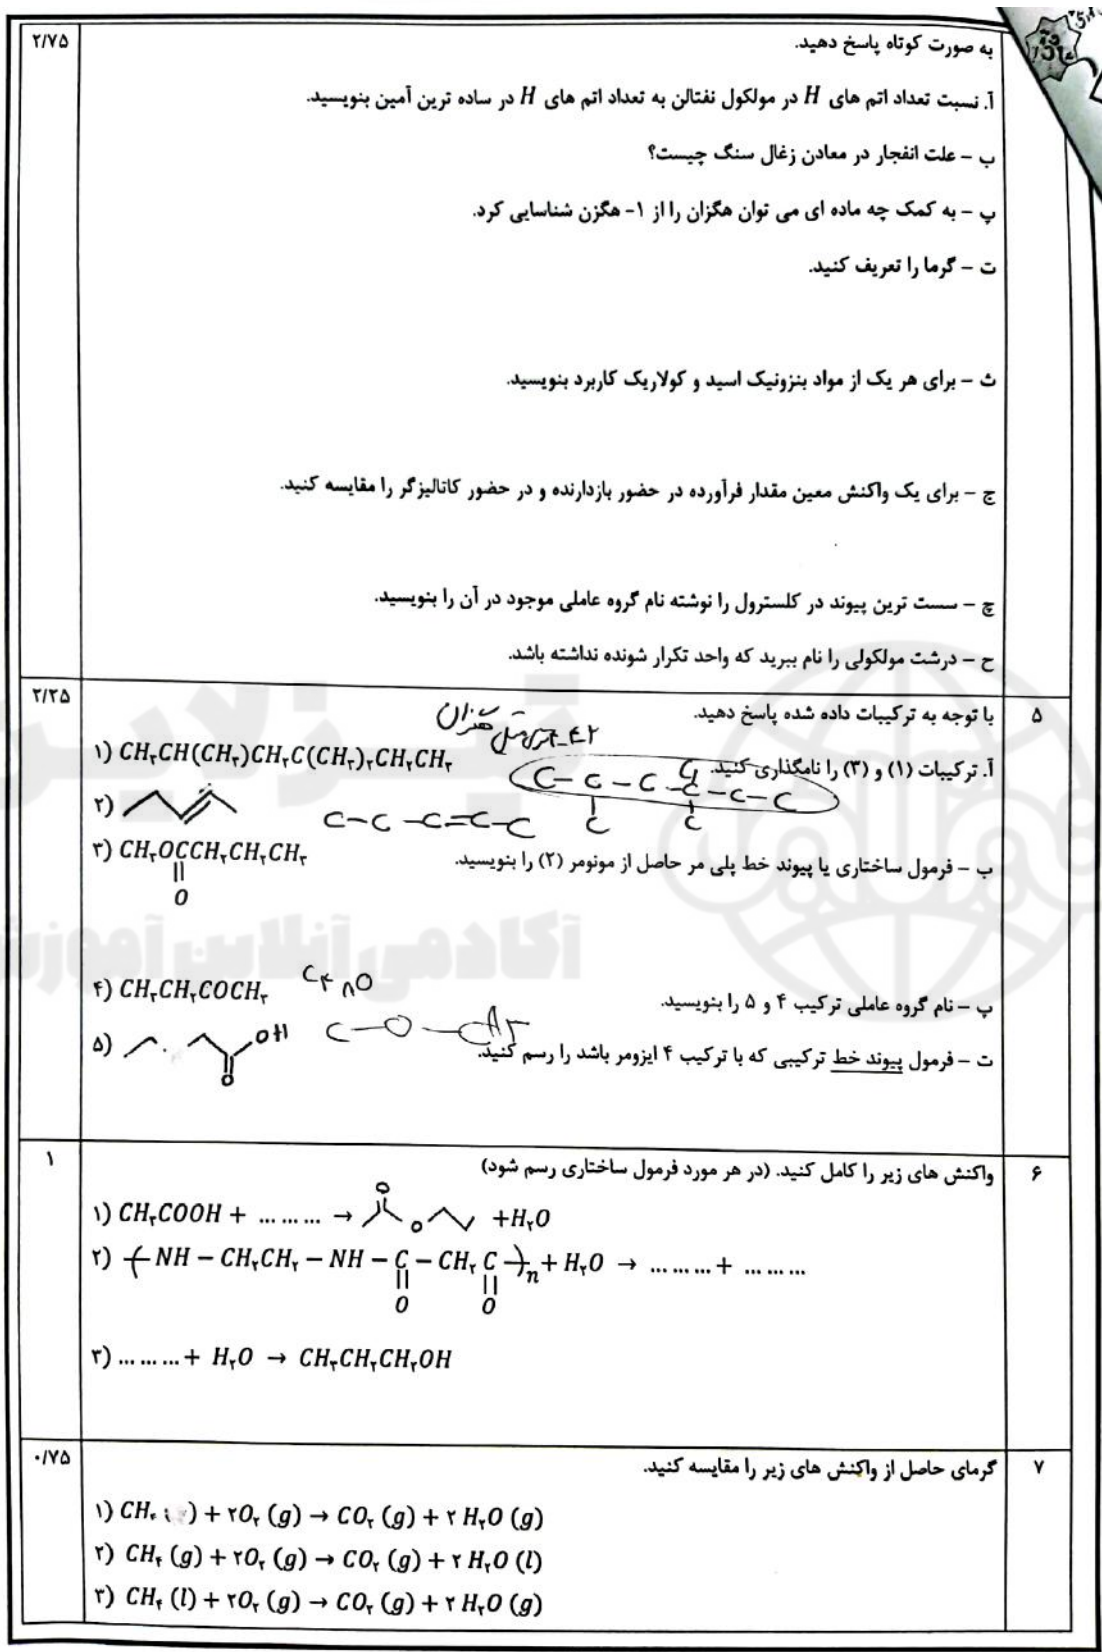 ۲/۷۵
به صورت کوتاه پاسخ دهید.
آ. نسبت تعداد اتم های H در مولکول نفتالن به تعداد اتم های H در ساده ترین آمین بنویسید.
ب - علت انفجار در معادن زغال سنگ چیست؟
پ - به کمک چه ماده ای می توان هگزان را از ۱- هگزن شناسایی کرد.
ت - گرما را تعریف کنید.
ث - برای هر یک از مواد بنزوئیک اسید و کولاریک کاربرد بنویسید.
ج - برای یک واکنش معین مقدار فرآورده در حضور بازدارنده و در حضور کاتالیزگر را مقایسه کنید.
چ - سست ترین پیوند در کلسترول را نوشته نام گروه عاملی موجود در آن را بنویسید.
ح - درشت مولکولی را نام ببرید که واحد تکرار شونده نداشته باشد.
۲/۲۵
۵
با توجه به ترکیبات داده شده پاسخ دهید.
آ. ترکیبات (۱) و (۳) را نامگذاری کنید.
۱) CH₃CH(CH₃)CH₂C(CH₃)₂CH₂CH₃
C-C-C-C-C-C
C C C
۲)
C-C-C=C-C
۳) CH₃OCCH₂CH₂CH₃
O
ب - فرمول ساختاری یا پیوند خط پلی مر حاصل از مونومر (۲) را بنویسید.
۴) CH₃CH₂COCH₃
C۴ ۸O
پ - نام گروه عاملی ترکیب ۴ و ۵ را بنویسید.
۵) OH
O
C-O-
ت - فرمول پیوند خط ترکیبی که با ترکیب ۴ ایزومر باشد را رسم کنید.
۱
۶
واکنش های زیر را کامل کنید. (در هر مورد فرمول ساختاری رسم شود)
۱) CH₃COOH + ......... → O O + H₂O
۲) (NH − CH₂CH₂ − NH − C − CH₂ C)n + H₂O → ......... + .........
O O
۳) ......... + H₂O → CH₃CH₂CH₂OH
۰/۷۵
۷
گرمای حاصل از واکنش های زیر را مقایسه کنید.
۱) CH₄ ( ) + ۲O₂ (g) → CO₂ (g) + ۲ H₂O (g)
۲) CH₄ (g) + ۲O₂ (g) → CO₂ (g) + ۲ H₂O (l)
۳) CH₄ (l) + ۲O₂ (g) → CO₂ (g) + ۲ H₂O (g)
آکادمی آنلاین آموزش